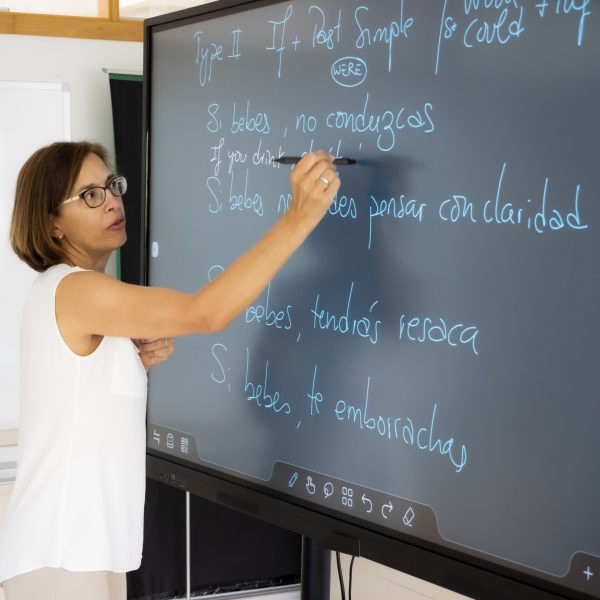 Type II If + Past Simple /
could
WERE
Si bebes, no conduzcas
If you drink
Si bebes pensar con claridad
bebes, tendrás resaca
Si bebes, te emborrachas